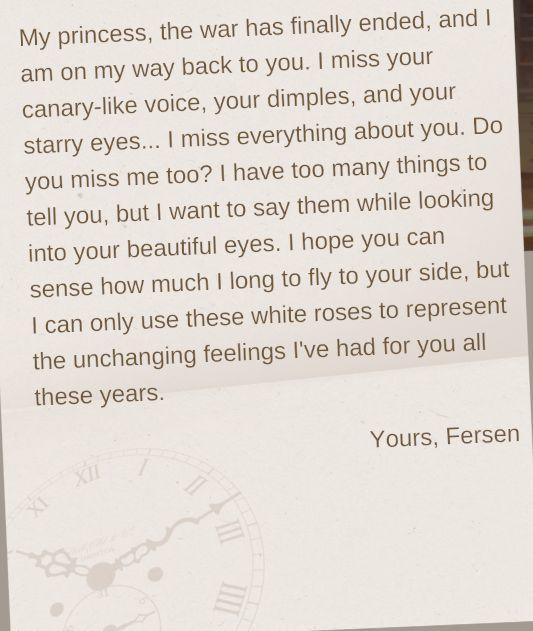 My princess, the war has finally ended, and I
am on my way back to you. I miss your
canary-like voice, your dimples, and your
starry eyes... I miss everything about you. Do
you miss me too? I have too many things to
tell you, but I want to say them while looking
into your beautiful eyes. I hope you can
sense how much I long to fly to your side, but
I can only use these white roses to represent
the unchanging feelings I've had for you all
these years.
Yours, Fersen
XI XII I II III IIII